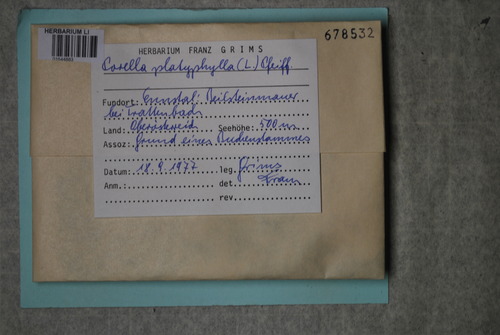 HERBARIUM LI
678532
HERBARIUM FRANZ GRIMS
platyphylla (L.) Pfeiff
Fundort: Ennstal:
bei Trattenbach
Land: Oberösterreich Seehöhe: 500 m
Assoz: Grund eines Buchenstammes
Datum: 18. 9. 1977 leg. Grims
Anm.: det. Franz
rev.